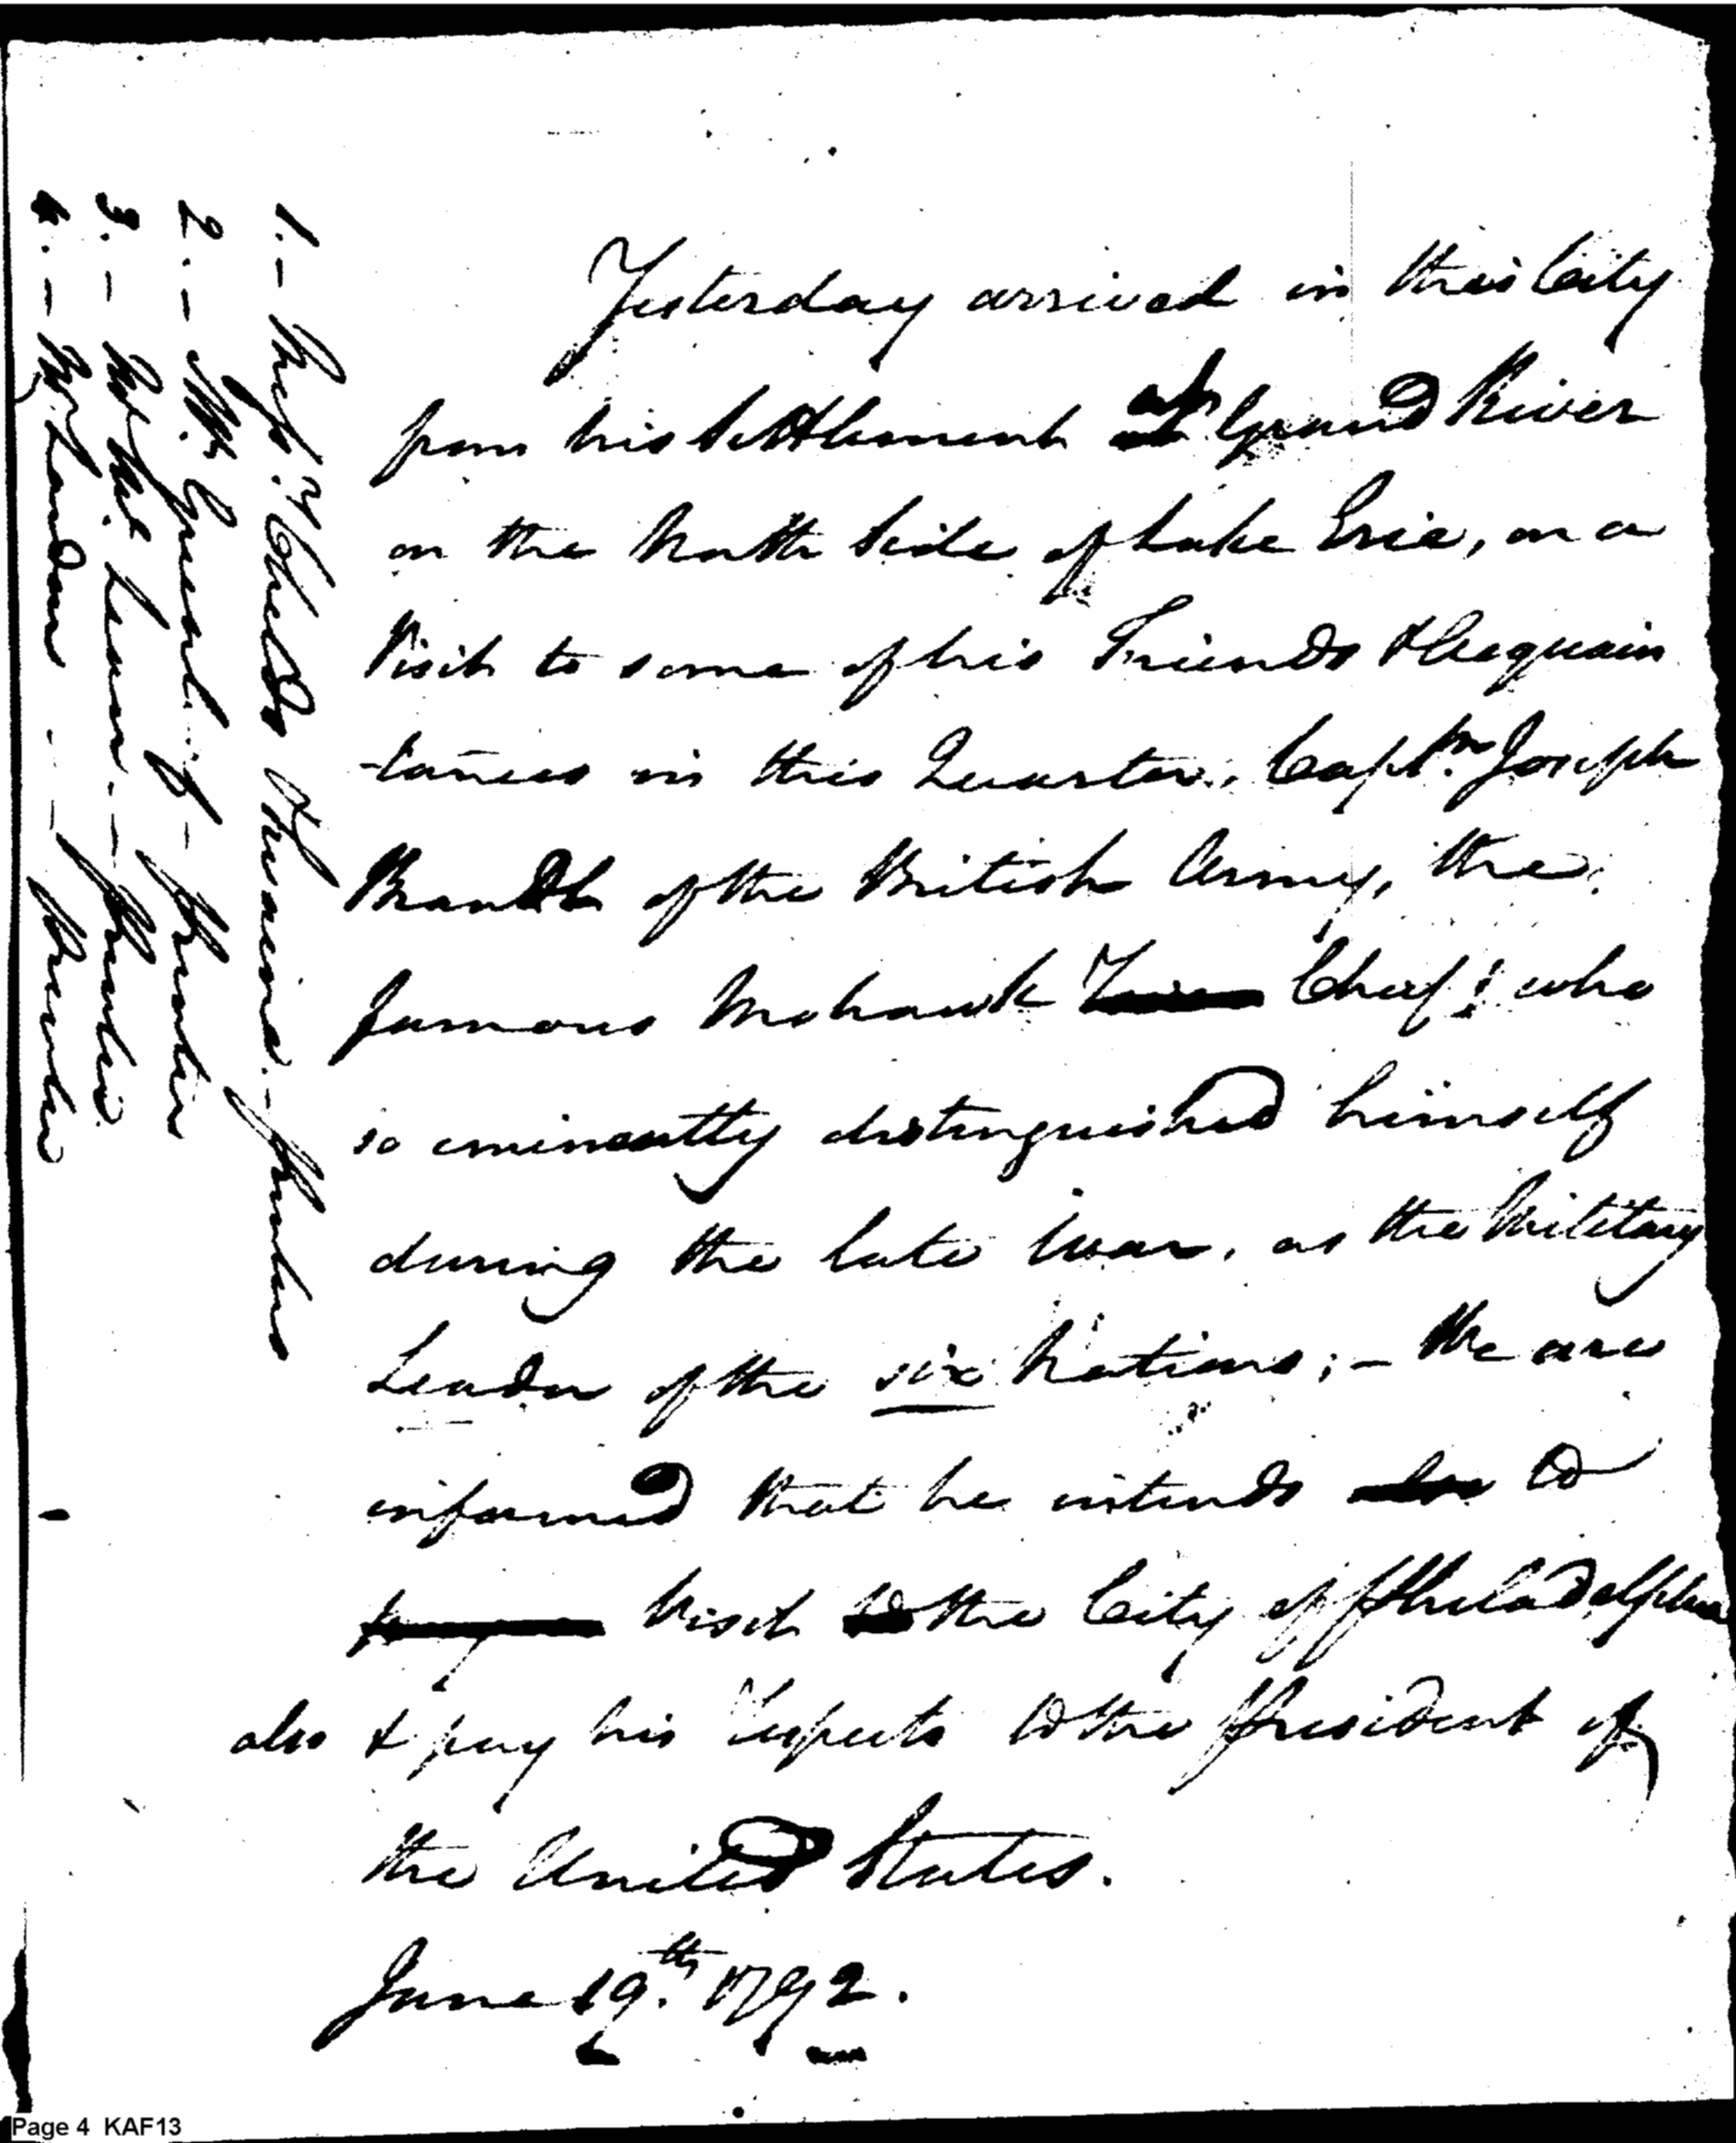 Yesterday arrived in this City
from his Settlement Grand River
on the North Side of Lake Erie, on a
Visit to some of his Friends & Acquain
-tances in this Quarter, Capt.n Joseph
Brandt of the British Army, the
famous Mohawk Chief; who
so eminently distinguished himself
during the late War, as the Military
Leader of the six Nations; - We are
informed that he intends to
Visit the City of Philadelphia
also & pay his respects to the President of
the United States.
June 19.th 1792.
1. -
2. -
3. -
4. -
Page 4 KAF13